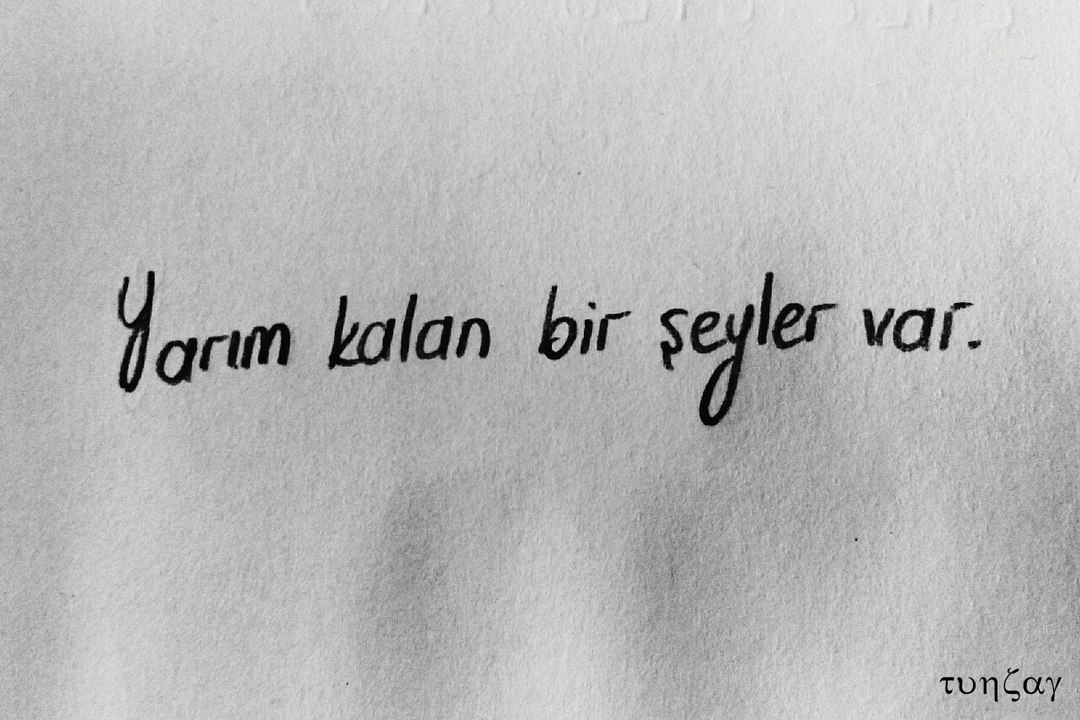 Yarım kalan bir şeyler var.
τυηζαγ